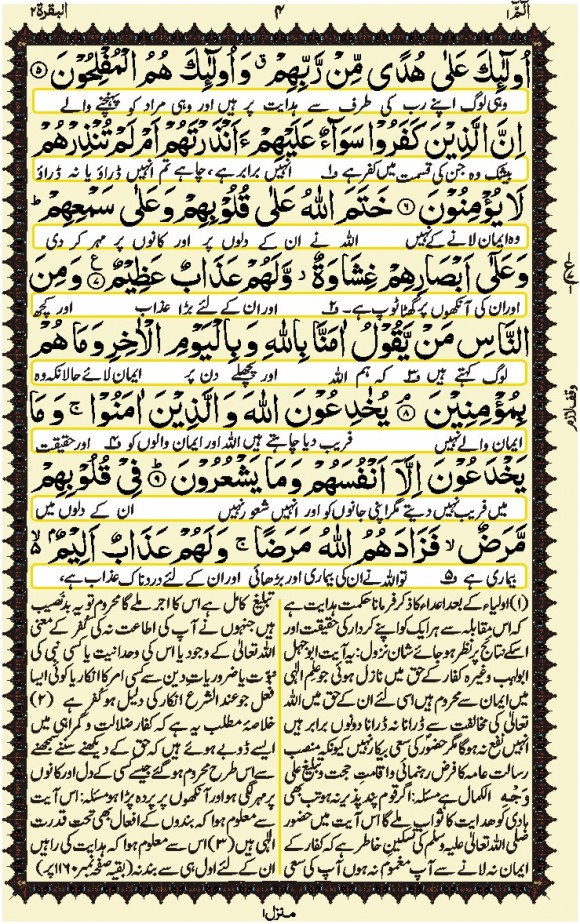 الٓمّٓ ١ ۴ البقرة ٢
اُولٰٓئِكَ عَلٰى هُدًى مِّنْ رَّبِّهِمْ ۗ وَاُولٰٓئِكَ هُمُ الْمُفْلِحُوْنَ ﴿۵﴾
وہی لوگ اپنے رب کی طرف سے ہدایت پر ہیں اور وہی مراد کو پہنچنے والے
اِنَّ الَّذِيْنَ كَفَرُوْا سَوَآءٌ عَلَيْهِمْ ءَاَنْذَرْتَهُمْ اَمْ لَمْ تُنْذِرْهُمْ
بیشک وہ جن کی قسمت میں کفر ہے ۱ انہیں برابر ہے، چاہے تم انہیں ڈراؤ یا نہ ڈراؤ
لَا يُؤْمِنُوْنَ ﴿۶﴾ خَتَمَ اللّٰهُ عَلٰى قُلُوْبِهِمْ وَعَلٰى سَمْعِهِمْ ؕ
وہ ایمان لانے کے نہیں اللہ نے ان کے دلوں پر اور کانوں پر مہر کر دی
وَعَلٰٓى اَبْصَارِهِمْ غِشَاوَةٌ ۫ وَّلَهُمْ عَذَابٌ عَظِيْمٌ ﴿۷﴾ ع وَمِنَ
اور ان کی آنکھوں پر گھٹا ٹوپ ہے۔ ۲ اور ان کے لئے بڑا عذاب اور کچھ
النَّاسِ مَنْ يَّقُوْلُ اٰمَنَّا بِاللّٰهِ وَبِالْيَوْمِ الْاٰخِرِ وَمَا هُمْ
لوگ کہتے ہیں ۳ کہ ہم اللہ اور پچھلے دن پر ایمان لائے حالانکہ وہ
بِمُؤْمِنِيْنَ ﴿۸﴾ ۘ يُخٰدِعُوْنَ اللّٰهَ وَالَّذِيْنَ اٰمَنُوْا ۚ وَمَا
وقف لازم
ایمان والے نہیں فریب دیا چاہتے ہیں اللہ اور ایمان والوں کو ۴ اور حقیقت
يَخْدَعُوْنَ اِلَّآ اَنْفُسَهُمْ وَمَا يَشْعُرُوْنَ ﴿۹﴾ ؕ فِيْ قُلُوْبِهِمْ
میں فریب نہیں دیتے مگر اپنی جانوں کو اور انہیں شعور نہیں ان کے دلوں میں
مَّرَضٌ ۙ فَزَادَهُمُ اللّٰهُ مَرَضًا ۚ وَلَهُمْ عَذَابٌ اَلِيْمٌ ۢ ۙ۬
بیماری ہے ۵ تو اللہ نے ان کی بیماری اور بڑھائی اور ان کے لئے دردناک عذاب ہے،
(۱) اولیاء کے بعد اعداء کا ذکر فرمانا حکمت ہدایت ہے
کہ اس مقابلہ سے ہر ایک کو اپنے کردار کی حقیقت اور
اسکے نتائج پر نظر ہو جائے شان نزول: یہ آیت ابوجہل
ابولہب وغیرہ کفار کے حق میں نازل ہوئی جو علم الٰہی
میں ایمان سے محروم ہیں اسی لئے ان کے حق میں اللہ
تعالٰی کی مخالفت سے ڈرانا نہ ڈرانا دونوں برابر ہیں
انہیں نفع نہ ہوگا مگر حضور کی سعی بیکار نہیں کیونکہ منصب
رسالت عامہ کا فرض رہنمائی و اقامتِ حجت و تبلیغ علی
وجہ الکمال ہے مسئلہ: اگر قوم پند پذیر نہ ہو تب بھی
ہادی کو ھدایت کا ثواب ملے گا اس آیت میں حضور
صلی اللہ تعالٰی علیہ وسلم کی تسکین خاطر ہے کہ کفار کے
ایمان نہ لانے سے آپ مغموم نہ ہوں آپ کی سعی
تبلیغ کامل ہے اس کا اجر ملے گا محروم تو یہ بدنصیب
ہیں جنہوں نے آپ کی اطاعت نہ کی کفر کے معنی
اللہ تعالٰی کے وجود یا اس کی وحدانیت یا کسی نبی کی
نبوّت یا ضروریاتِ دین سے کسی امر کا انکار یا کوئی ایسا
فعل جو عند الشرع انکار کی دلیل ہو کفر ہے (۲)
خلاصۂ مطلب یہ ہے کہ کفار ضلالت و گمراہی میں
ایسے ڈوبے ہوئے ہیں کہ حق کے دیکھنے سننے سمجھنے
سے اس طرح محروم ہو گئے جیسے کسی کے دل اور کانوں
پر مہر لگی ہو اور آنکھوں پر پردہ پڑا ہو مسئلہ: اس آیت
سے معلوم ہوا کہ بندوں کے افعال بھی تحت قدرت
الٰہی ہیں (۳) اس سے معلوم ہوا کہ ہدایت کی راہیں
ان کے لئے اول ہی سے بند نہ (بقیہ صفحہ نمبر ۱۱۶۰ پر)
منزل۱